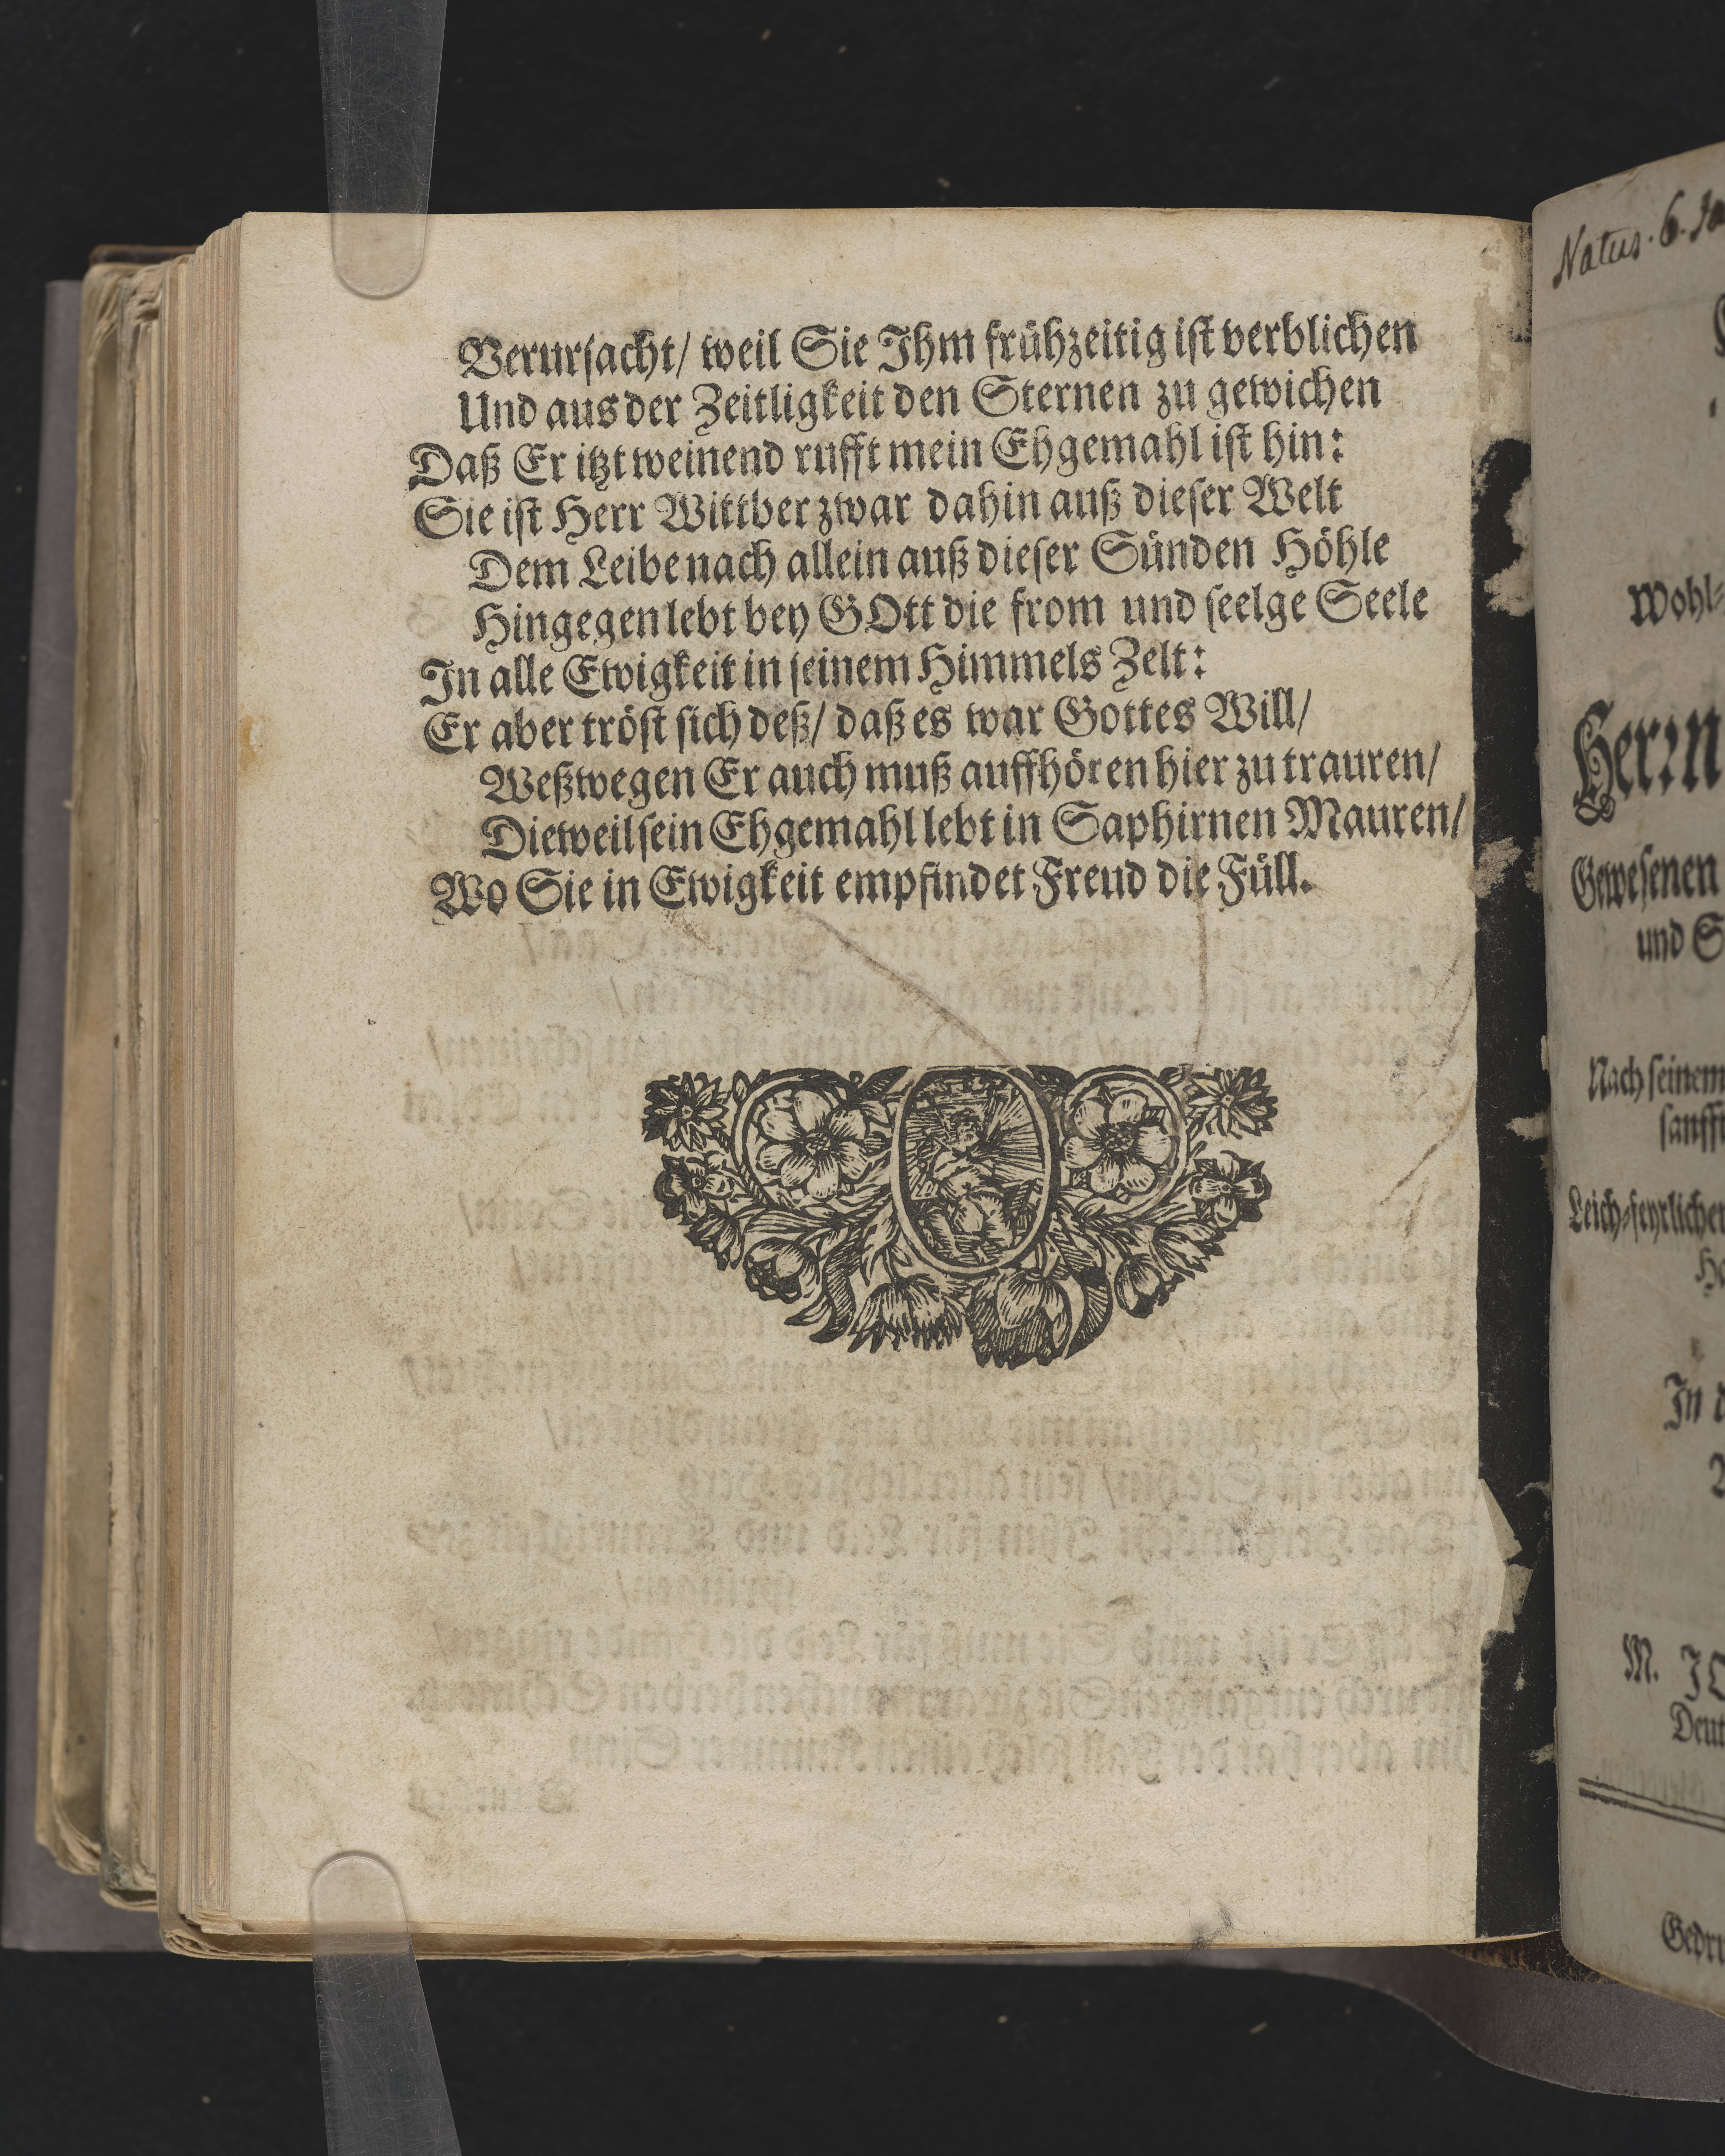 Verursacht/ weil Sie Ihm frühzeitig ist verblichen
Und aus der Zeitligkeit den Sternen zu gewichen
Daß Er itzt weinend rufft mein Ehgemahl ist hin:
Sie ist Herr Wittber zwar dahin auß dieser Welt
Dem Leibe nach allein auß dieser Sünden Höhle
Hingegen lebt bey GOtt die from und seelge Seele
In alle Ewigkeit in seinem Himmels Zelt:
Er aber tröst sich deß/ daß es war Gottes Will/
Weßwegen Er auch muß auffhören hier zu trauren/
Dieweil sein Ehgemahl lebt in Saphirnen Mauren/
Wo Sie in Ewigkeit empfindet Freud die Füll.
Natus. 6.
Wohl-
Herrn
Gewesenen
und
Nach seinem
Leich-feyrlichen
In
M.